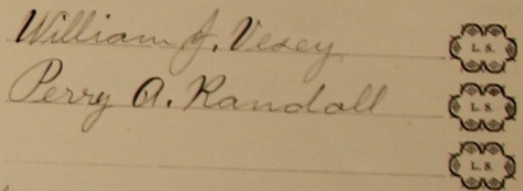 William J. Vesey L. S.
Perry A. Randall L. S.
L. S.